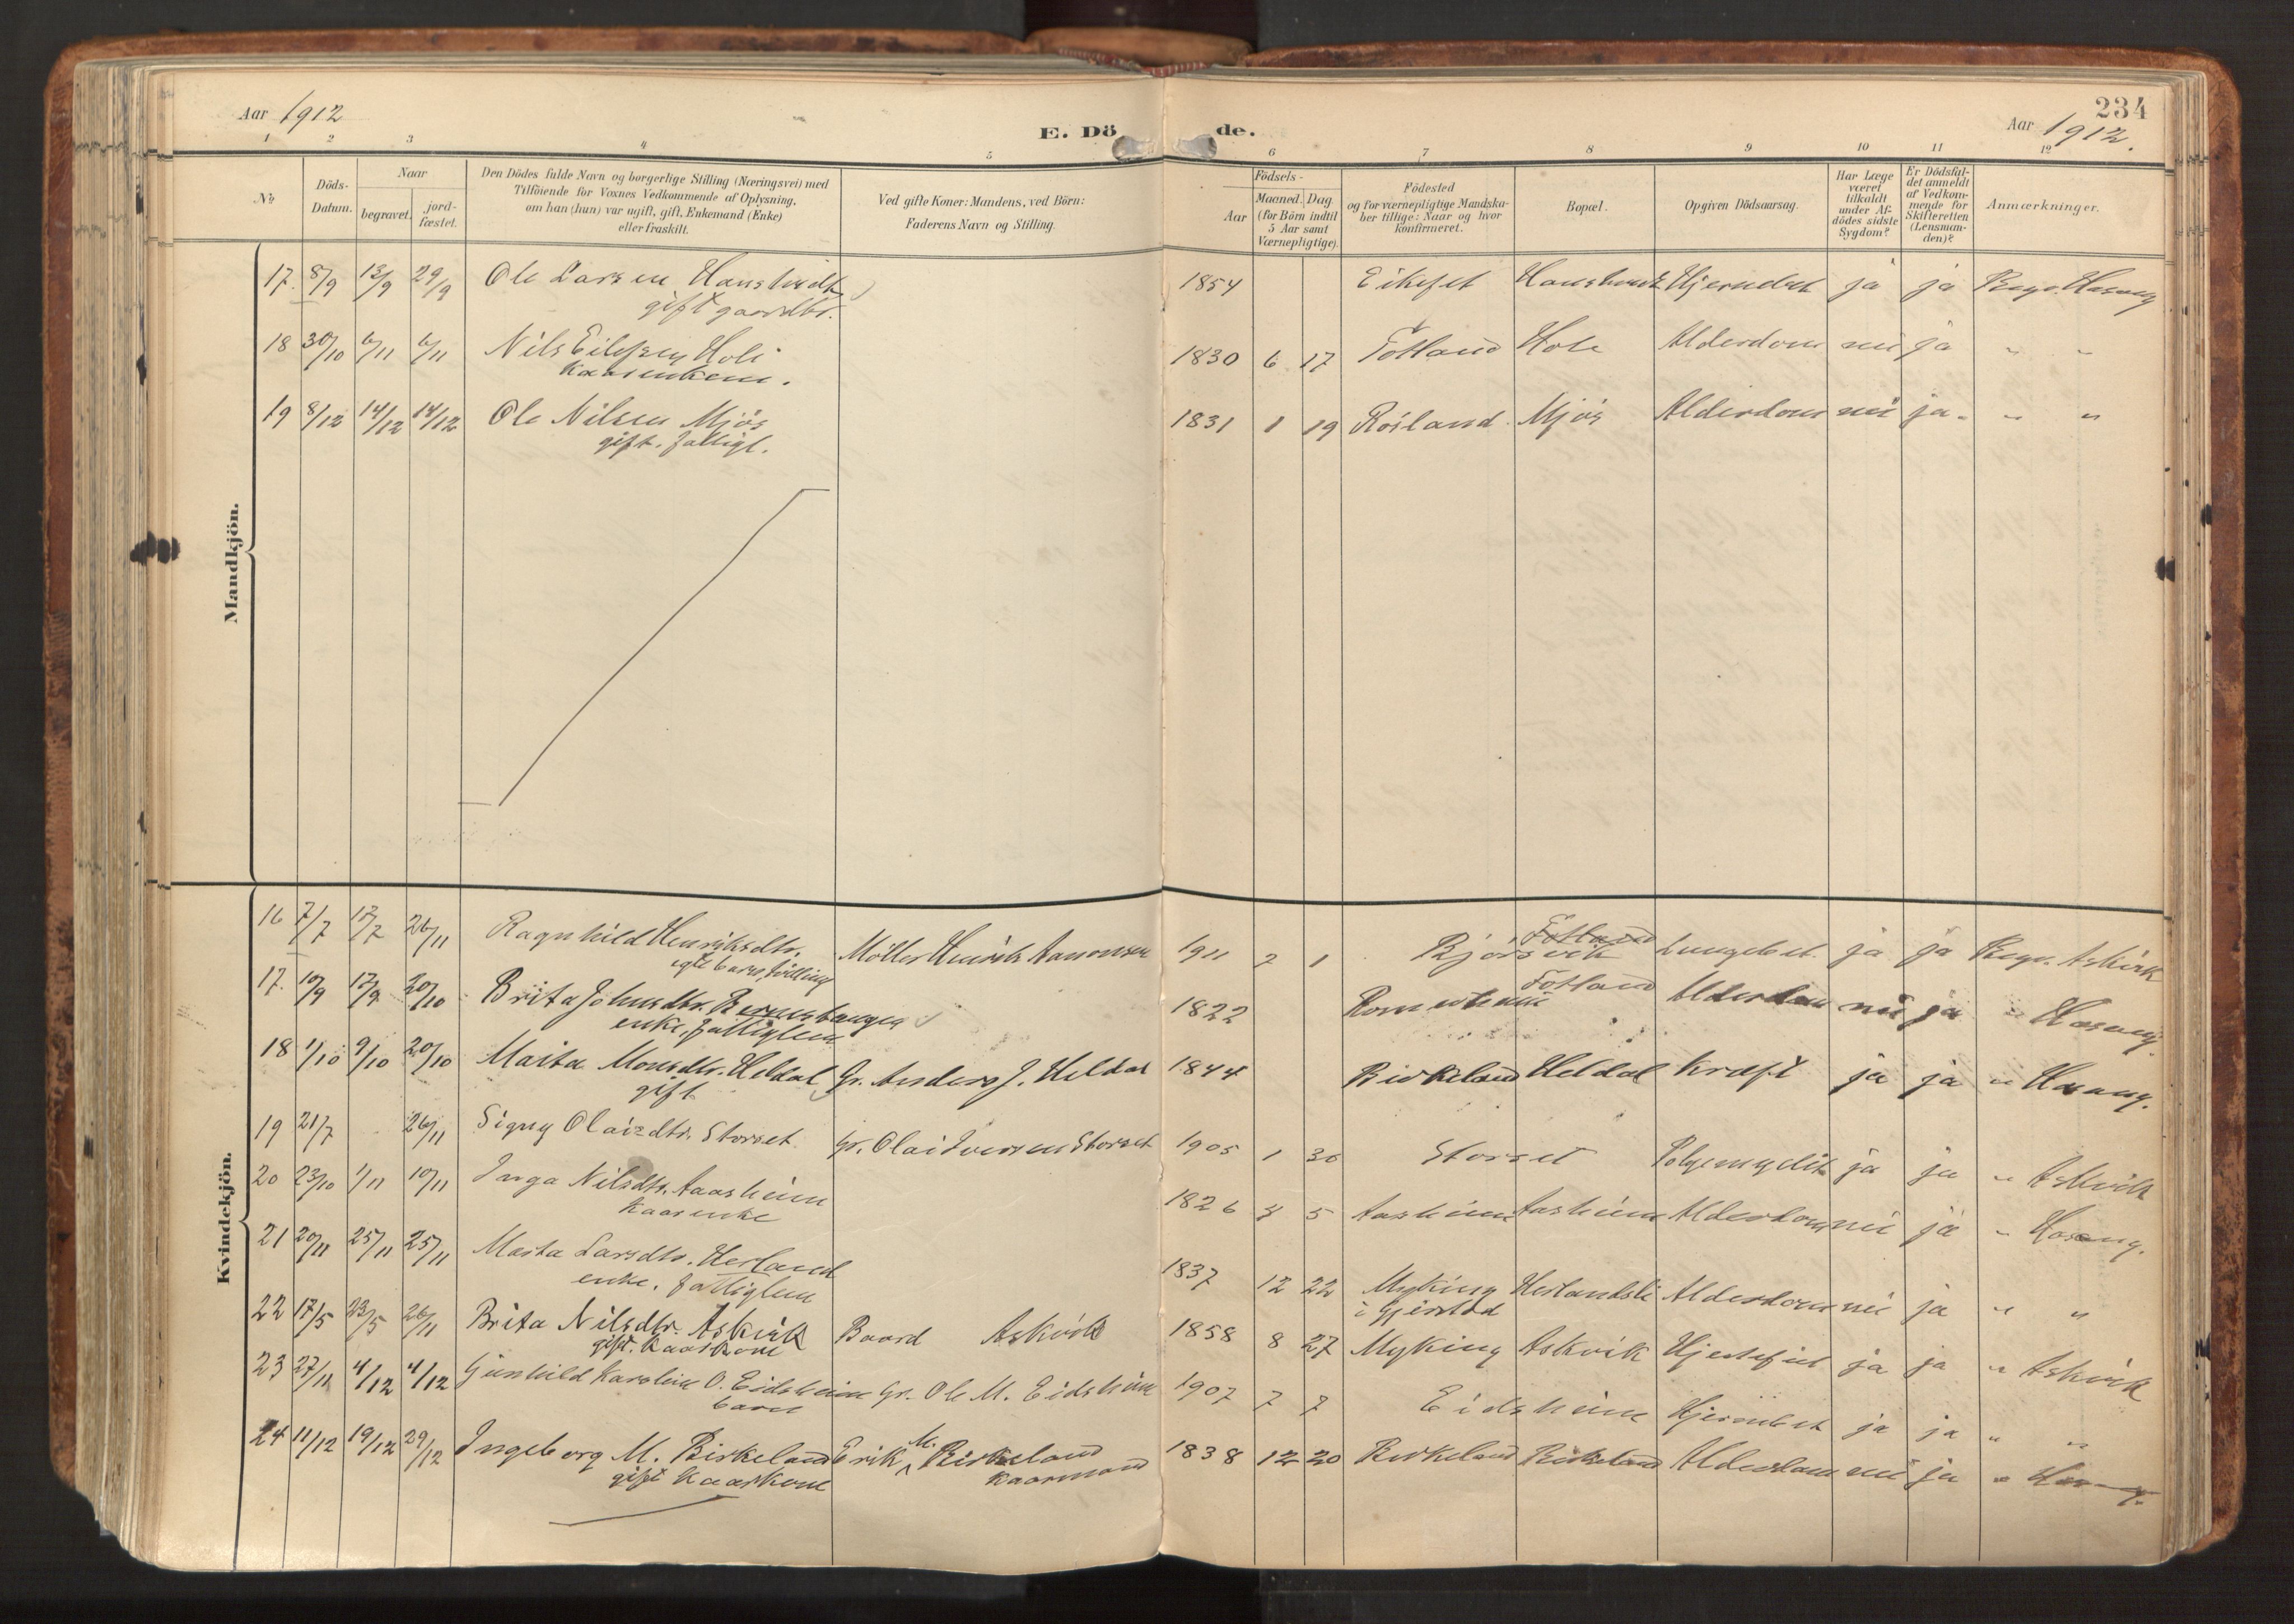 234
Aar 1912
E. Döde.
Aar 1912.
1 2 3 4 5 6 7 8 9 10 11 12
No
Döds-Datum.
Naar
begravet.
jord-fæstet.
Den Dödes fulde Navn og borgerlige Stilling (Næringsvei) med
Tilföiende for Voxnes Vedkommende af Oplysning,
om han (hun) var ugift, gift, Enkemand (Enke)
eller fraskilt.
Ved gifte Koner: Mandens, ved Börn:
Faderens Navn og Stilling.
Födsels-
Aar
Maaned. Dag
(for Börn indtil
5 Aar samt
Værnepligtige).
Födested
og for værnepligtige Mandska-
ber tillige: Naar og hvor
konfirmeret.
Bopæl.
Opgiven Dödsaarsag.
Har Læge
været
tilkaldt
under Af-
dödes sidste
Sygdom?
Er Dödsfal-
det anmeldt
af Vedkom-
mende for
Skifteretten
(Lensman-
den)?
Anmærkninger.
Mandkjön.
17. 8/9 13/9 29/9 Ole Larsen 1854 Eikefet ja ja Begr. Hosang
gift gaardbr.
18 30/10 6/11 6/11 Nils Hole 1830 6 17 Totland Hole Alderdom nei ja " "
19 8/12 14/12 14/12 Ole Nilsen Mjös 1831 1 19 Rösland Mjös Alderdom nei ja " "
gift. fattigl.
Kvindekjön.
16 7/7 17/7 26/11 Ragnhild Henriksdtr. Möller Henrik Aamonsen 1911 2 1 Bjørsvik ja ja Begr. Askvik
egte barn, tvilling
17. 10/9 17/9 20/10 Brita Johnsdtr. 1822 Totland Alderdom nei ja " Hosang.
enke, fattiglem
18 1/10 9/10 20/10 Marta Monsdtr. Heldal Gr. Anders J. Heldal 1844 Birkeland Heldal Kræft ja ja " Hosang.
gift
19 21/7 26/11 Signy Olaisdtr. Storset Gr. Olai Iversen Storset 1905 1 30 Storset ja ja " Askvik
20 23/10 1/11 10/11 Inga Nilsdtr. Aasheim 1826 4 5 Aasheim Aasheim Alderdom nei ja " Hosang.
Kaarenke
21 20/11 25/11 25/11 Marta Larsdtr. Herland 1837 12 22 Myking Herlandsli Alderdom nei ja " "
enke. fattiglem i Gjerstad
22 17/5 23/5 26/11 Brita Nilsdtr. Askvik Baard Askvik 1858 8 27 Myking Askvik Hjertefeil ja ja " Askvik
gift. Kaarkone
23 27/11 4/12 4/12 Gunhild Karoline O. Eidsheim Gr. Ole M. Eidsheim 1907 7 7 Eidsheim ja ja " "
barn
24 11/12 19/12 29/12 Ingeborg M. Birkeland Erik M. Birkeland 1838 12 20 Birkeland Birkeland Alderdom nei ja " Hosang.
gift Kaarkone Kaarmand